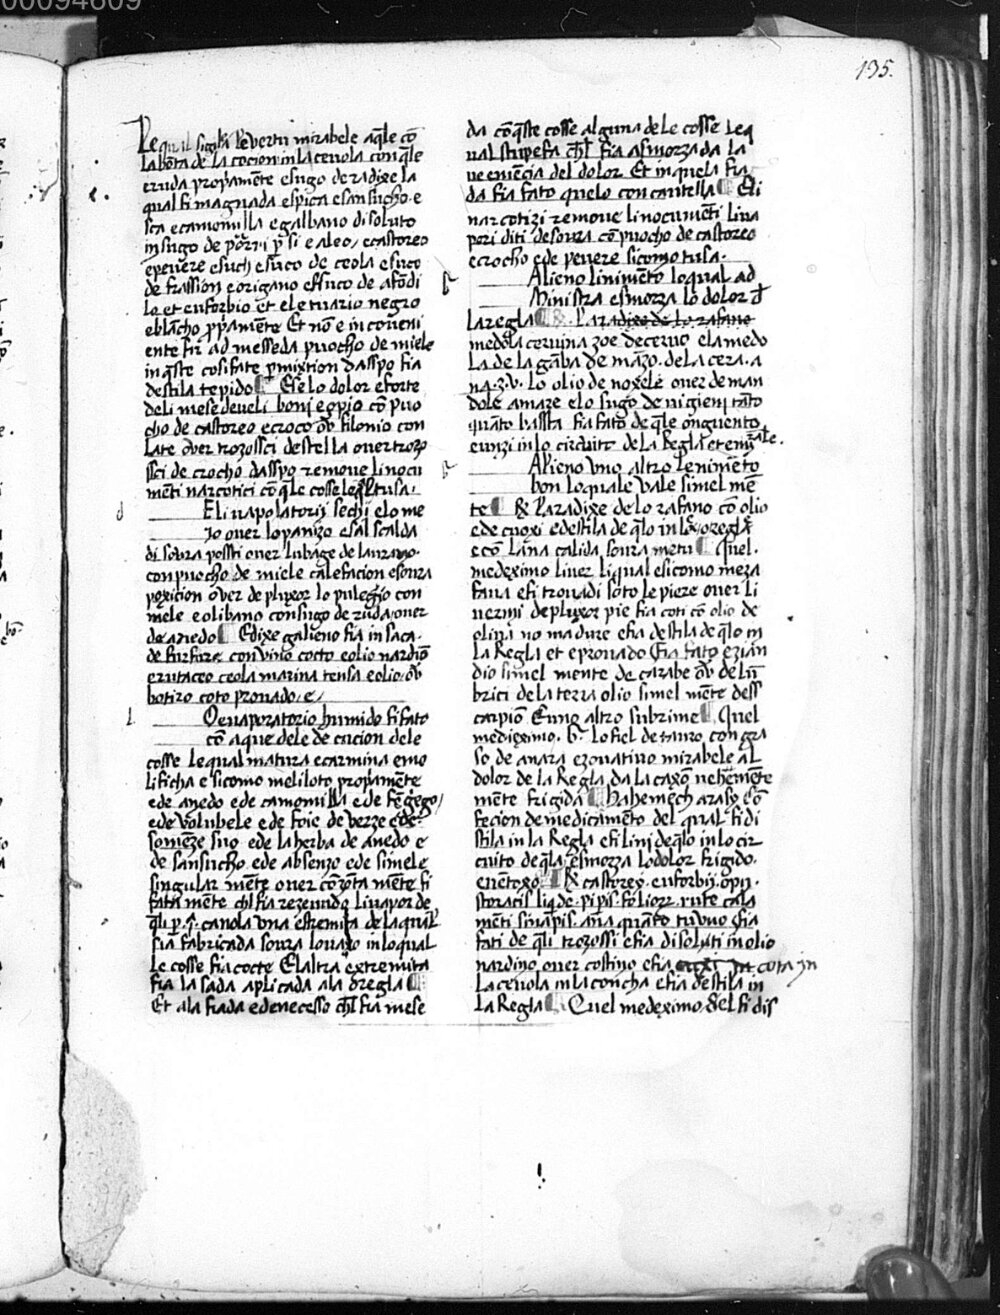 135.
Le qual sigilla le vertu mirabele aq̄le cō
la bota de la cocion in la cevola con q̄le
cruda propamēte e sugo de radixe la
qual fi magnada e spica e sansucho e
sca e camomilla e galbano disoluto
in sugo de porri p si e aleo, e castoreo
e pevere e such e suco de ceola e suco
de frassion e origano e suco de afodi
lo et euforbio et eletuario negro
e blācho ppamēte Et nō e inconveni
ente fir ad messeda puocho de miele
in q̄ste cosi fate pmixtion dasspo fia
destila tepido E se lo dolor e forte
deli mese develi boni e opio cō puo
cho de castoreo e croco ov filonio con
late over trozossci de stella over trozo
ssci de crocho dasspo remove li nocu
menti narcotici cō q̄le cosse le q̄l tusa.
E li vapolatorij sechi e lo me
jo over lo panizo e sal scalda
di sovra possti over lubage de lavrano.
con puocho de miele calefacion e sovra
poxicion over de pluxor lo pulegio con
mele e olibano con sugo de ruda over
de anedo E dixe galieno fia in saca.
de furfore con vino cocto e olio nardio
e rutaceo ceola marina tensa e olio. ov
botiro coto provado. e/
O evaporatorio humido fi fato
cō aque dele decucion dele
cosse le qual matura e carmina e mo
lificha e sicomo meliloto propamēte
e de anedo e de camomilla e de fē grego/
e de volubele e de foie de verze e de
somēze suo e de la herba de anedo e
de sansucho. e de absenzo e de simele
singular mēte over cōposta mēte fi
fata mente chl fia rezevudo li vapor de
q̄li p. q̄. canola una estremita de la qual
sia fabricada sovra lo vaxo in lo qual
le cosse fia cocte E laltra extremita
fia la sada aplicada ala oregla
Et ala fiada e denecesso chl fia mese
da cō q̄ste cosse alguna de le cosse le q
ual stupefa chl fia asmorzada la
vemēcia del dolor. Et in quela fia
da fia fato quelo con cautella E li
narcotizi remove li nocumēti li va
pori diti de sovra cō puocho de castoreo
e crocho e de pevere sicomo tusa.
Alieno linimēto lo qual ad
ministra e smorza lo dolor d̄
la regla ℞. La radixe de lo rafano
medola cervina zoe de cervo e la medo
la de la gāba de māzo. de la cera. a
nq. ʒ. v. lo olio de noxele over de man
dole amare e lo sugo de nigieni tāto
quāto bassta fia fato de q̄le onguento
e unzi in lo circuito de la Regla et emirale.
Alieno uno altro lenimēto
bon lo quale vale simel mē
te ℞ La radixe de lo rafano cō olio
e de cuoxi e destila de q̄lo in la oregla
e cō lana calida sovra metu Quel.
medeximo liver li qual e sicomo meza
fava e fi trovadi soto le piere over li
vermi de pluxor pie fia coti cō olio de
olivi no madure e fia destila de q̄lo in
la Regla et e provado E fia fato ezian
dio simel mente de carabe ov de lū
brici de la terra olio simel mēte dess
carpiō E uno altro subrime Quel
medeximo. ℞. lo fiel de tauro con gra
so de anara e zovativo mirabele al
dolor de la Regla, da la caxō vehemēte
mēte frigida Mahemech arasy Cō
fecion de medicamēto del qual fi di
stila in la Regla e fi linj de q̄lo in lo cir
cuito de q̄la e smorza lo dolor frigido.
e vētoxo ℞ castorey. euforbij. opij.
storacis liqde. pipis. folior. rute cala
menti sinapis. ana quāto tu vuo E fia
fati de q̄li trozossi e fia disoluti in olio
nardino over costino e fia cota in
la cevola in la concha e fia destila in
la Regla Quel medeximo. & el fi dis